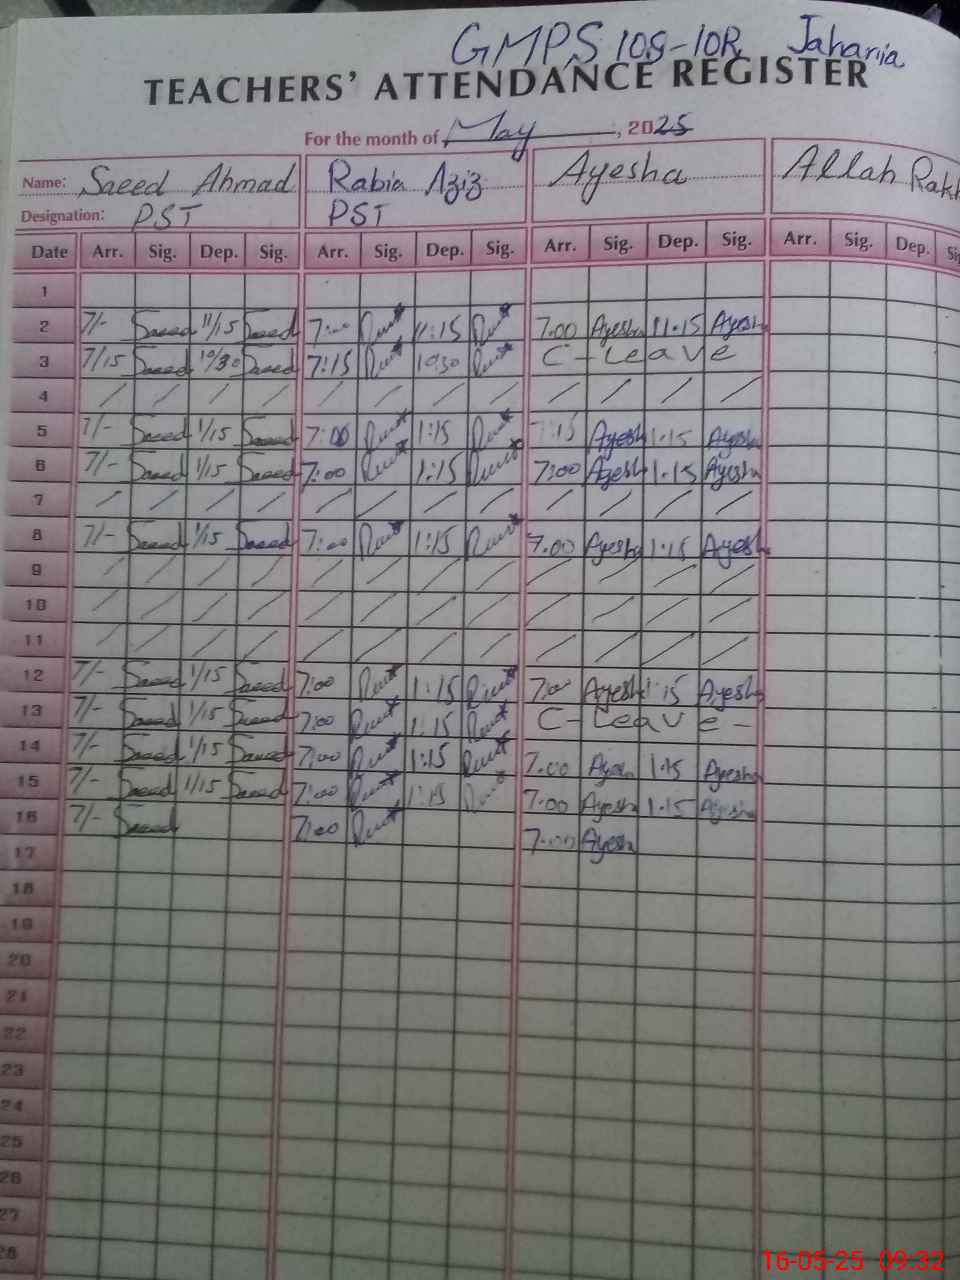 GMPS 108-10R Jaharia
TEACHERS' ATTENDANCE REGISTER
For the month of May, 2025
Name: Saeed Ahmad Rabia Aziz Ayesha Allah Rakh
Designation: PST PST
Date Arr. Sig. Dep. Sig. Arr. Sig. Dep. Sig. Arr. Sig. Dep. Sig. Arr. Sig. Dep. Sig
1
2 7/- Saeed 11/15 Saeed 7:00 11:15 7.00 Ayesha 11.15 Ayesh
3 7/15 Saeed 10/30 Saeed 7:15 10:30 C-Leave
4 / / / / / / / / / / / /
5 7/- Saeed 1/15 Saeed 7:00 1:15 7:15 Ayesh 1.15 Ayesha
6 7/- Saeed 1/15 Saeed 7:00 1:15 7:00 Ayesh 1.15 Ayesha
7 / / / / / / / / / / / /
8 7/- Saeed 1/15 Saeed 7:00 1:15 7.00 Ayesha 1.15 Ayesh
9 / / / / / / / / / / / /
10 / / / / / / / / / / / /
11 / / / / / / / / / / / /
12 7/- Saeed 1/15 Saeed 7:00 1:15 7:00 Ayesh 1:15 Ayesha
13 7/- Saeed 1/15 Saeed 7:00 1:15 C-Leave-
14 7/- Saeed 1/15 Saeed 7:00 1:15 7.00 1.15 Ayesha
15 7/- Saeed 1/15 Saeed 7:00 1:15 7.00 Ayesha 1.15 Ayesha
16 7/- Saeed 7:00 7.00 Ayesha
17
18
19
20
21
22
23
24
25
26
27
28
16-05-25 09:32